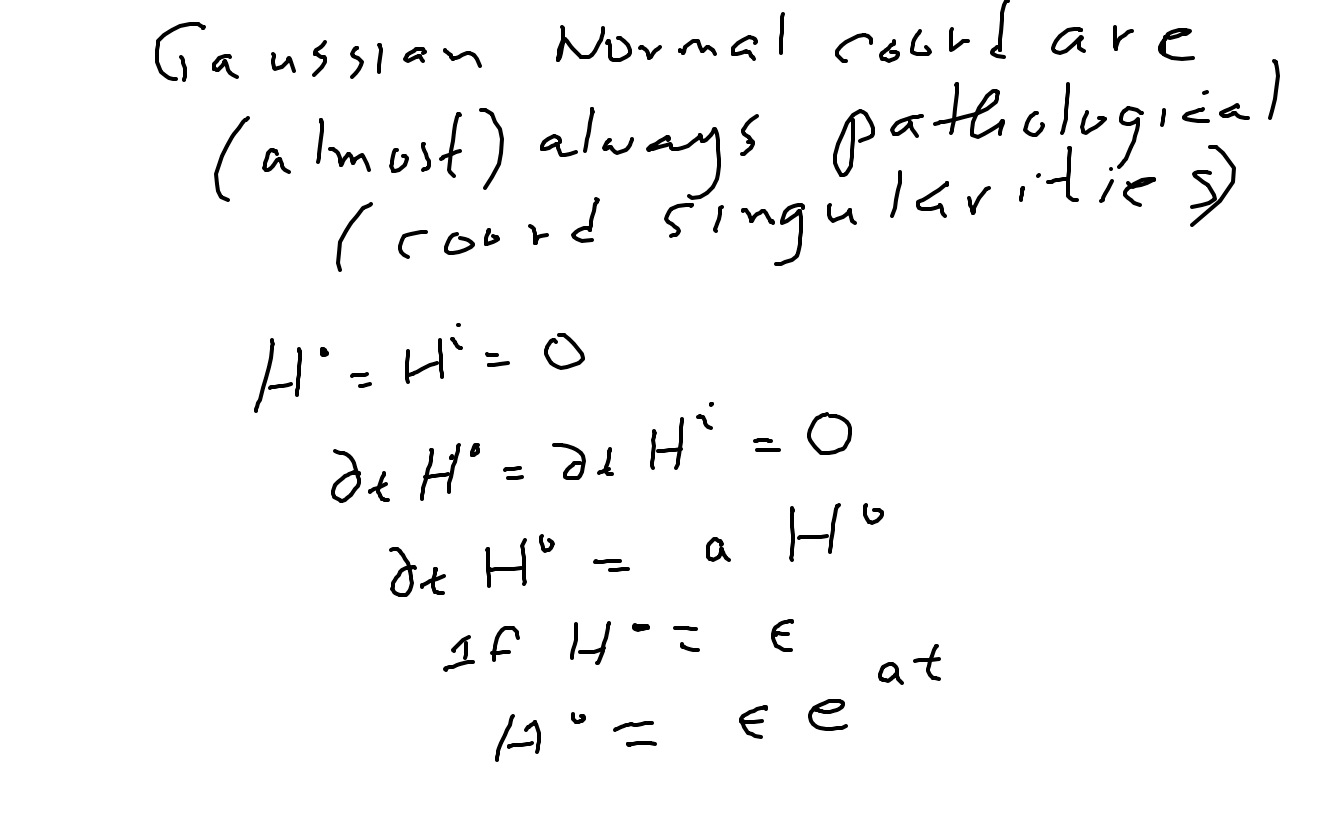 Gaussian Normal coord are
(almost) always pathological
(coord singularities)
H⁰ = Hⁱ = 0
∂t H⁰ = ∂t Hⁱ = 0
∂t H⁰ = a H⁰
If H⁰ = ϵ
H⁰ = ϵ e^{at}